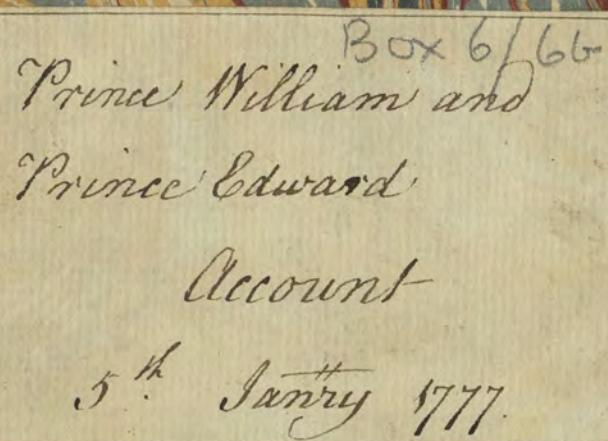 Box 6/66
Prince William and
Prince Edward
Account
5th. Janry 1777.